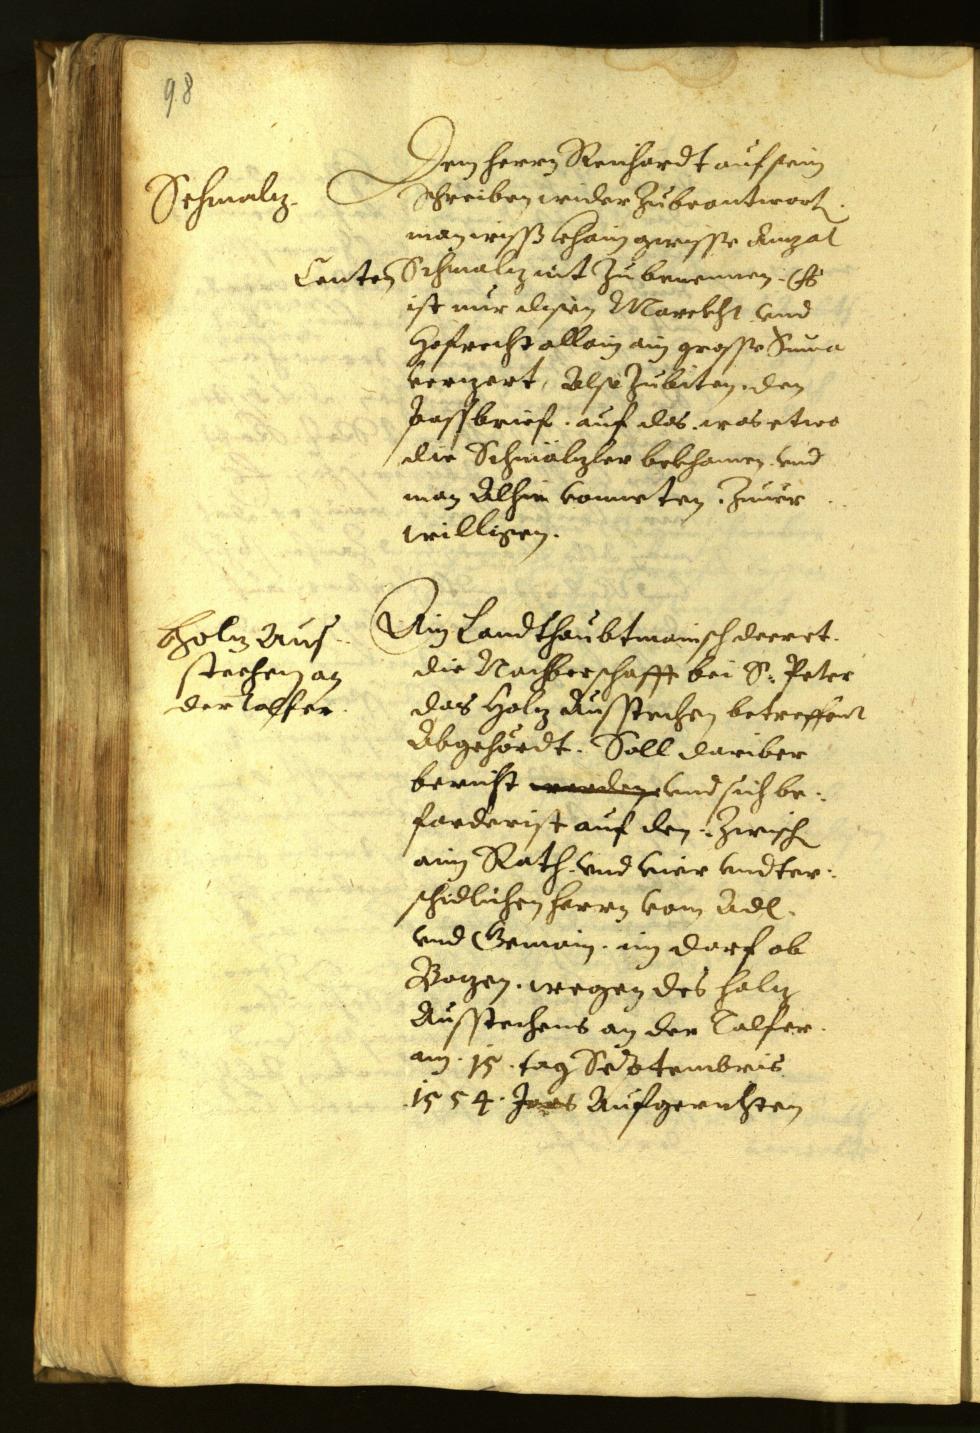 98
Schmalz.
Dem herrn Reinhardt auf sein
Schreiben wider Zubeantwort.
man wiss khain gwisse Anzal
Centen Schmalz nit Zubenennen. Es
ist nur disen Marckht vnd
Hofrecht allain ain grosse Suma
verzert, Also Zubiten. den
Passbrief. auf das. was etwo
die Schmälzler bekhamen vnd
man Alhie vonneten. Zuuer
willigen.
Holz Aus-
stechen an
der Talfer.
Ain Landthaubtmanisch decret.
die Nachberschafft bei S: Peter
das Holz Ausstechen betreffent
Abgehördt. Soll dariber
bericht werden vnd sich be-
farderist auf den. Zwisch
aim Rath. vnd vier vndter-
schidlichen herrn vom Adl.
vnd Gemain. im dorf ob
Bozen. wegen des holz
Ausstechens an der Talfer.
am. 15. tag Septembris
1554. Jars Aufgerichten